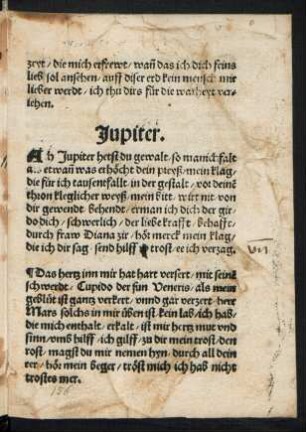 zeyt / die mich erfrewt / wañ das ich dich feins
lieb sol ansehen / auff diser erd kein mensch mir
lieber werdt / ich thu dirs für die warheyt ver-
iehen.
Jupiter.
Ah Jupiter hetst du gewalt / so manickfalt
etwañ was erhöcht dein preyß / mein klag
die für ich tausentfalt in der gestalt / vor deinē
thron kleglicher weyß / mein bitt würt nit von
dir gewendt behendt / erman ich dich der gir
do dich / schwerlich / der liebe krafft / behafft /
durch fraw Diana zir / hör merck mein klag /
die ich dir sag / send hilff trost / ee ich verzag.
¶ Das hertz inn mir hat hart versert / mit seinē
schwerdt / Cupido der sun Veneris / als mein
geblüt ist gantz verkert / vnnd gar verzert / herr
Mars solchs in mir üben ist / kein lab / ich hab /
die mich enthalt / erkalt / ist mir hertz mut vnd
sinn / vmb hilff / ich gilff / zu dir mein trost / den
rost / magst du mir nemen hyn / durch all dein
eer / hör mein beger / tröst mich ich hab nicht
trostes mer.